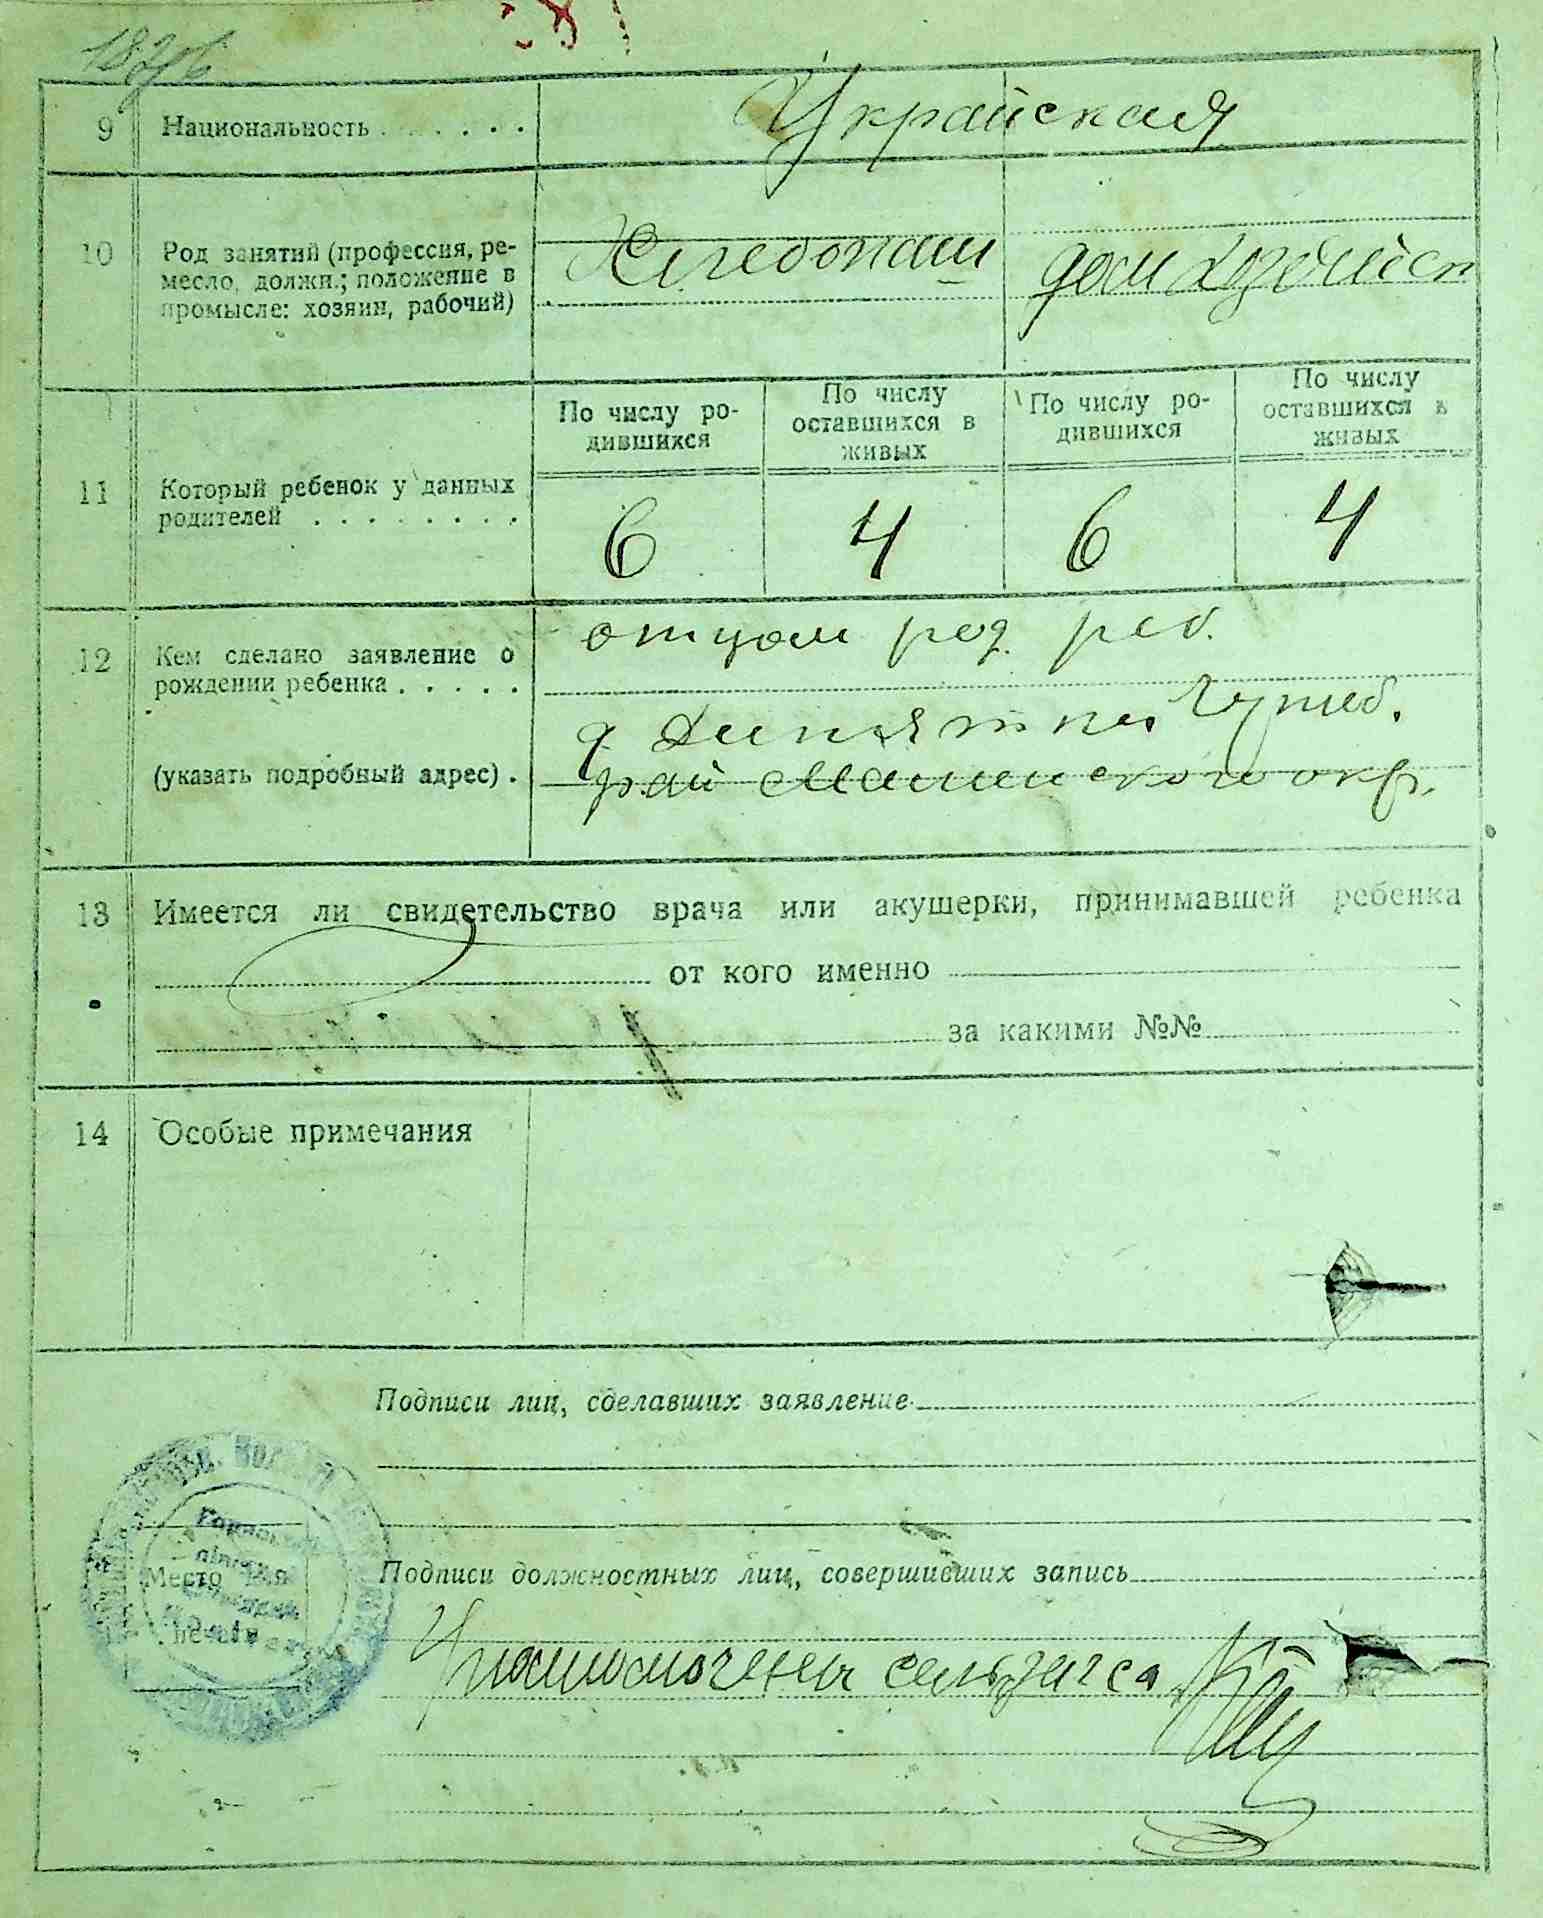 9 Национальность . . . . . . . Украйская
10 Род занятий (профессия, ре-
месло, должн.; положение в
промысле: хозяин, рабочий)
Хлебопаш
дом хозяйст
По числу ро-
дившихся
По числу
оставшихся в
живых
По числу ро-
дившихся
По числу
оставшихся в
живых
11 Который ребенок у данных
родителей . . . . . . . .
6 4 6 4
12 Кем сделано заявление о
рождении ребенка . . . . .
(указать подробный адрес) .
отцом род. реб.
рай окр.
13 Имеется ли свидетельство врача или акушерки, принимавшей ребенка
от кого именно
за какими №№
14 Особые примечания
Подписи лиц, сделавших заявление
Место для
печати
Подписи должностных лиц, совершивших запись
сельзагса